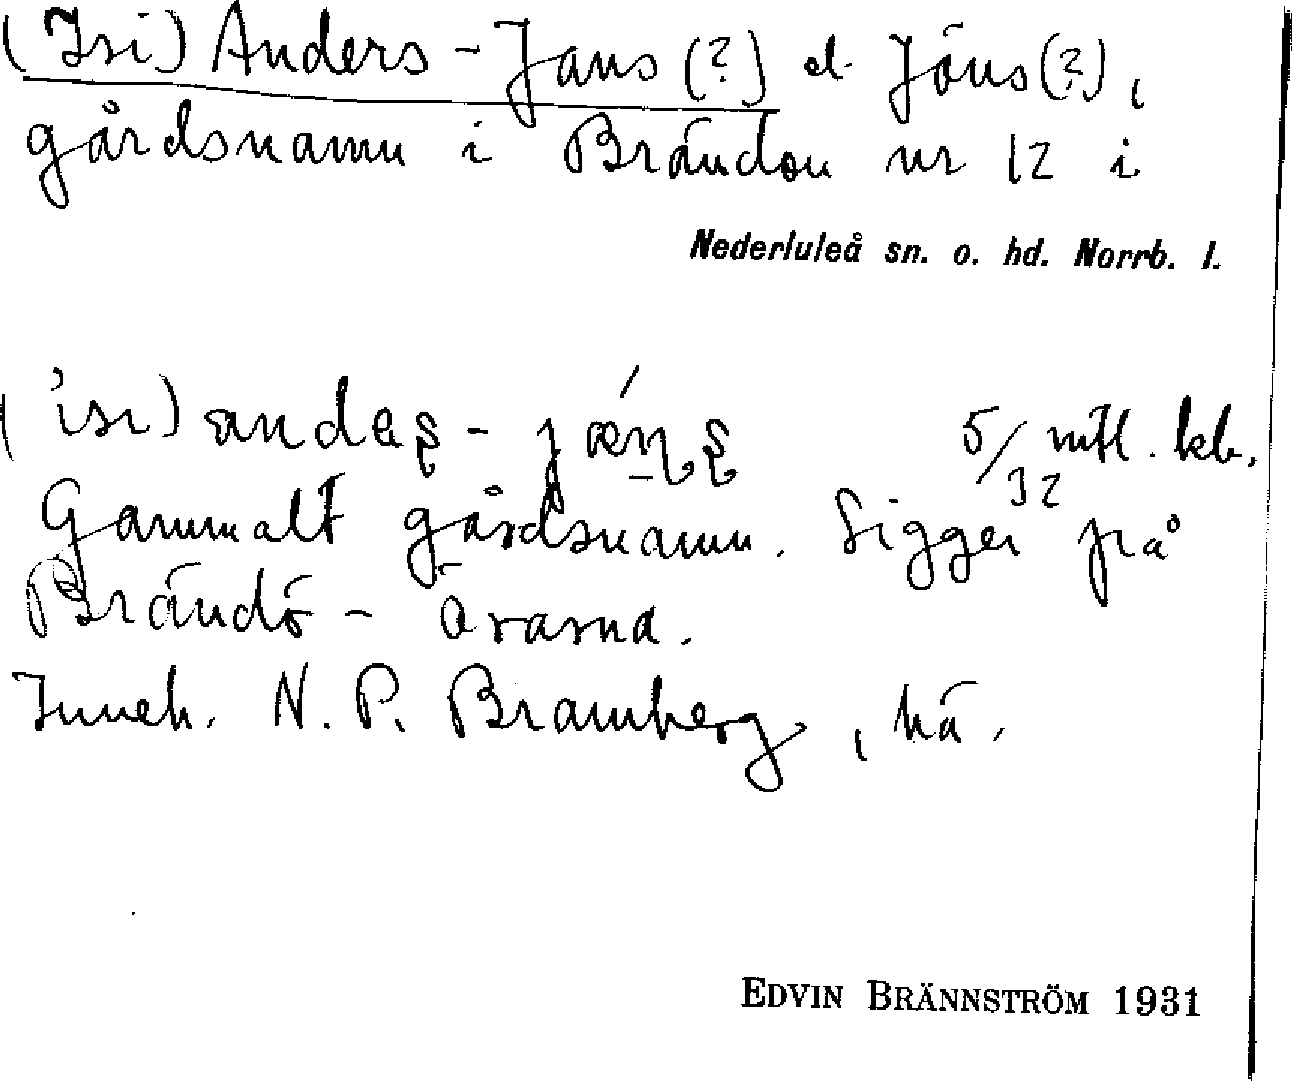 (Isi) Anders-Jans(?) el. Jöns(?),
gårdsnamn i Brändön nr 12 i
Nederluleå sn. o. hd. Norrb. l.
5/32 mtl. kb.
Gammalt gårdsnamn. Ligger på
Brändö-Övarna.
Inneh. N. P. Bramberg,
EDVIN BRÄNNSTRÖM 1931